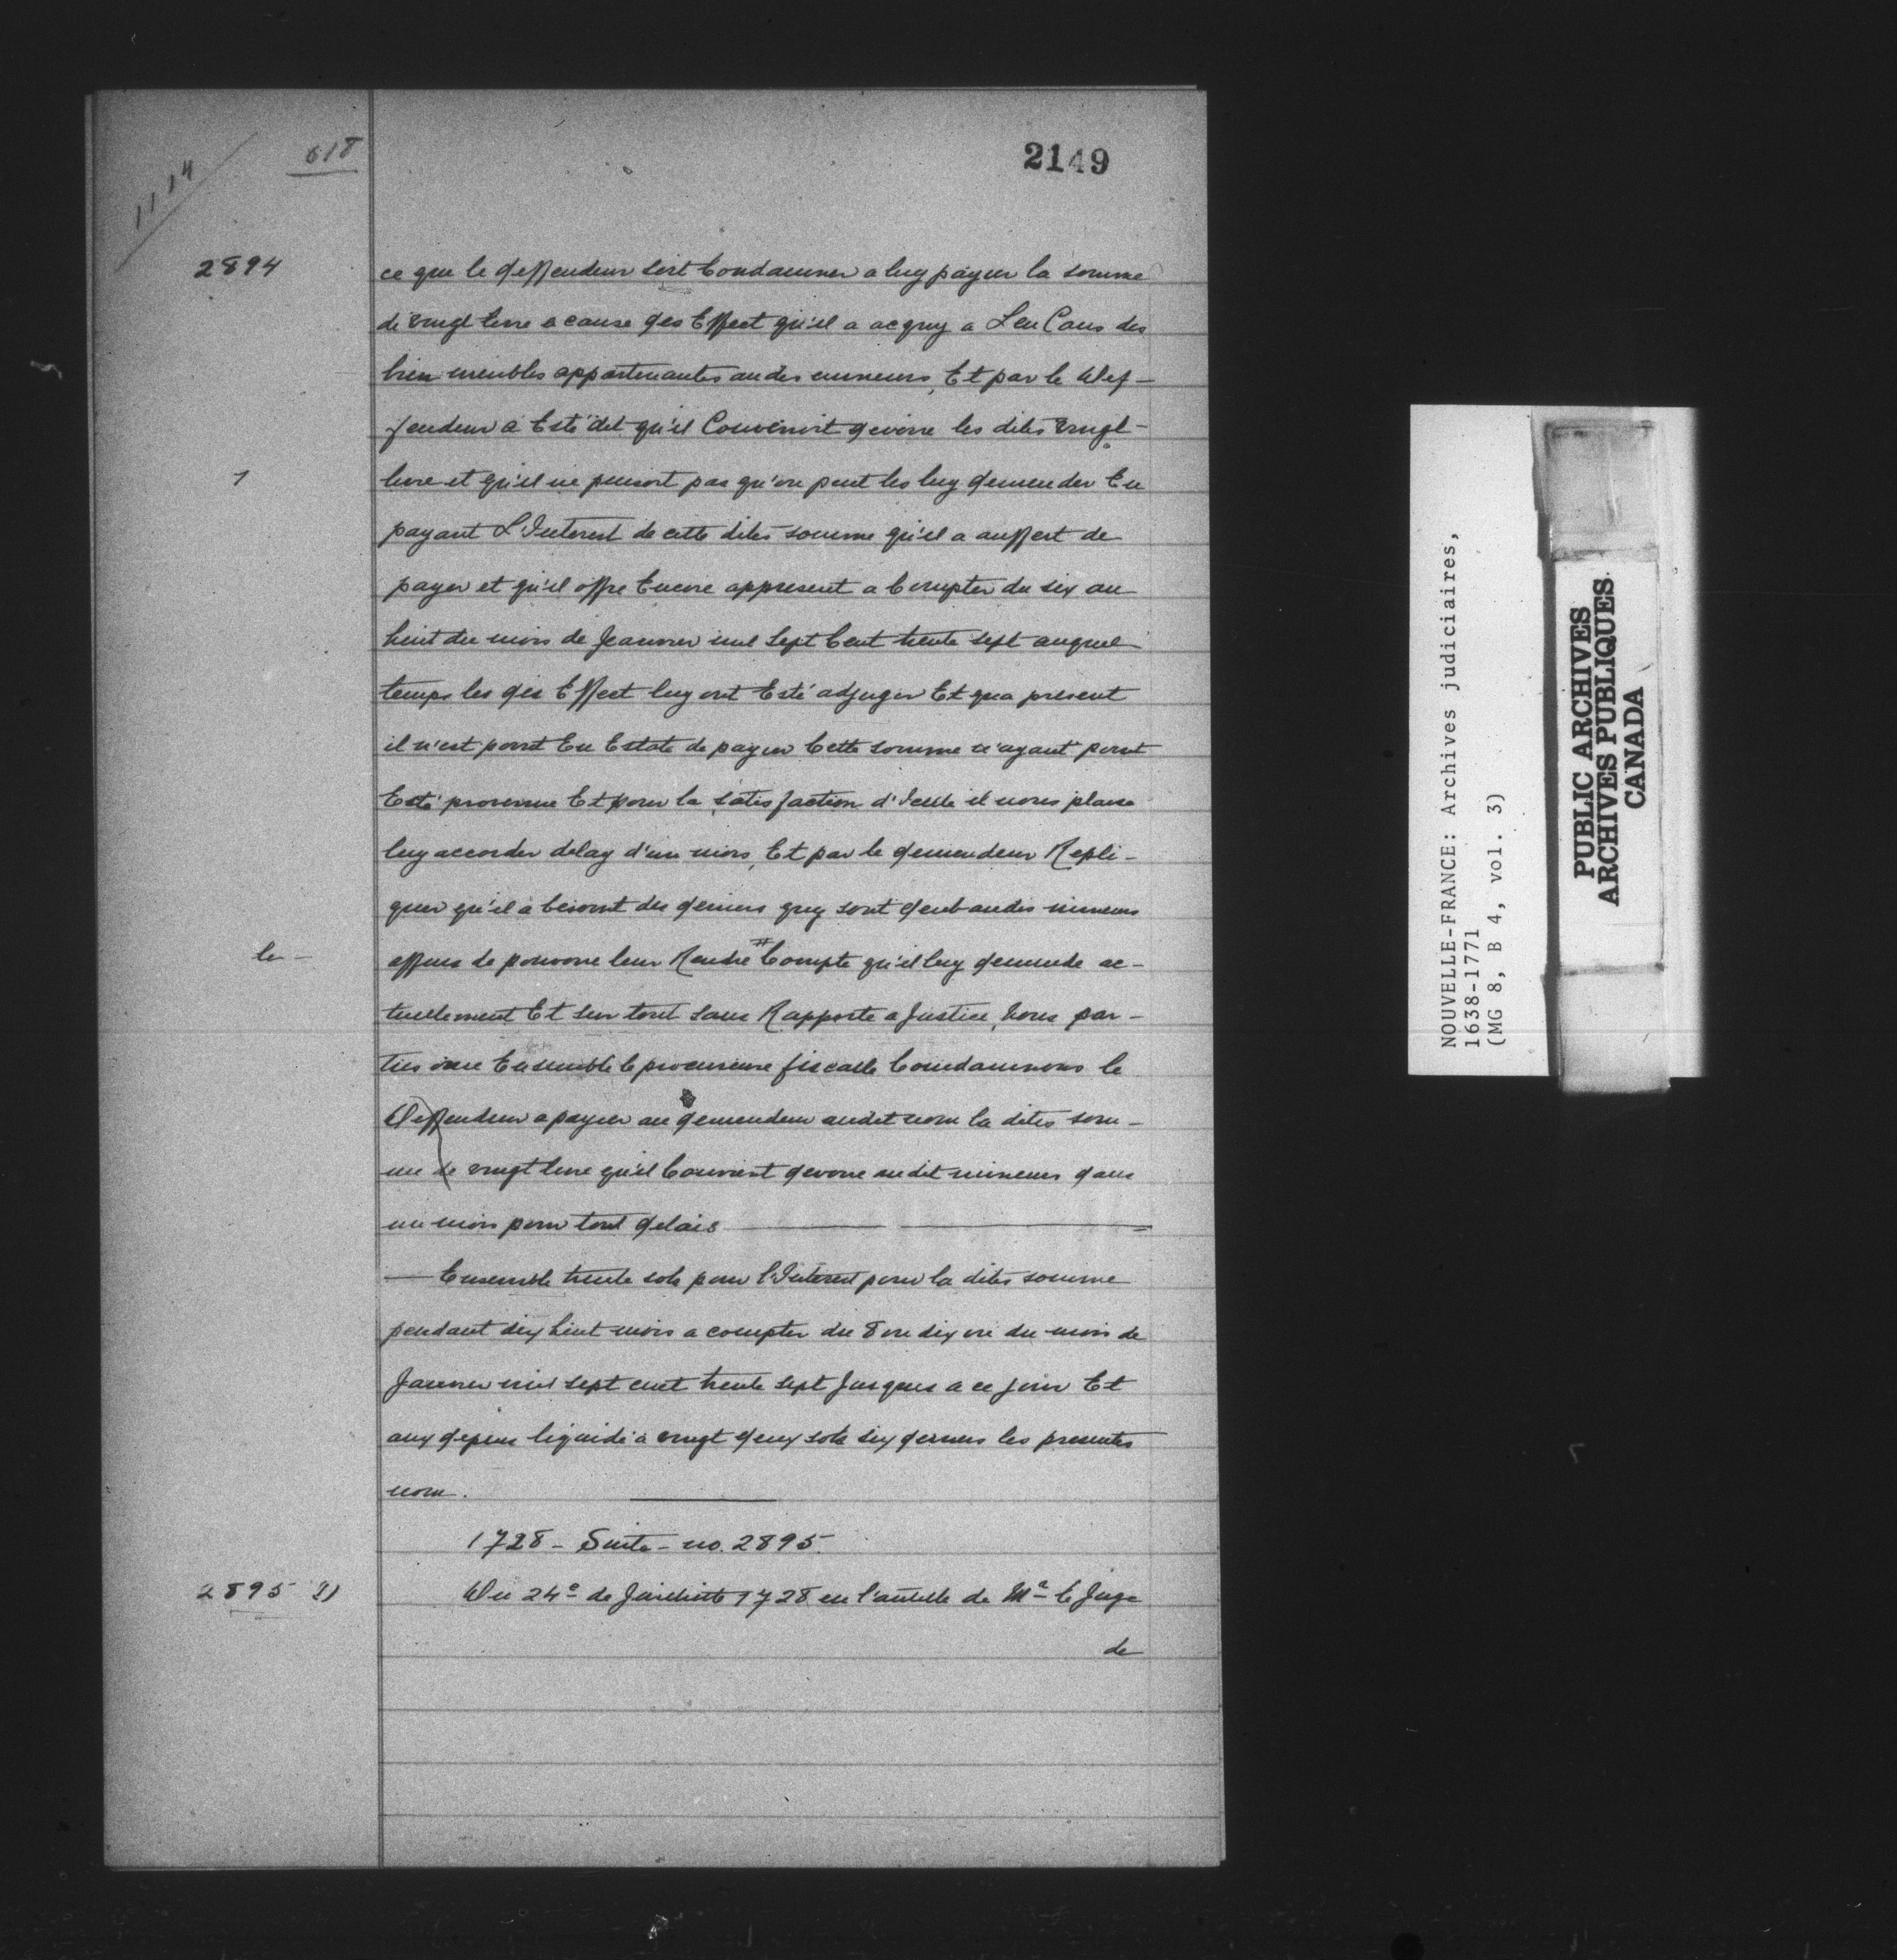 1114
618
2149
2894
ce que le deffendeur soit Condamner a luy payer la somme
de vingt livre a cause des Effect qu'il a acquy a Len Cans des
bien meubles appartenantes audes mineurs, Et par le Def-
fendeur a Esté dit qu'il Convenoit devoire les dites vingt
livre et qu'il ne pensoit pas qu'on peut les luy demender En
payant L'Interest de cette dites somme qu'il a auffert de
payer et qu'il offre Encore appresent a Compter du six au
huit du mois de Jeanvier mil Sept Cent trente sept auquel
temps les des Effect luy ont Esté adjuger Et qua present
il n'est point En Estate de payer Cette somme n'ayant point
Esté provenue Et pour la satisfaction d'Icelle il nous plaise
luy accorder delay d'un mois, Et par le demendeur Repli-
quer qu'il a besoint des deniers quy sont deub audis mineurs
le -
affins de pouvoire leur Rendre # Compte qu'il luy demende ac-
tuellement Et sur tout sans Rapporte a Justice, Nous par-
ties ouie Ensemble le procureure fiscalle Condamnons le
Deffendeur a payer au demendeur audit nom la dites som-
me de vingt livre qu'il Convient devoire audit mineurs dans
un mois pour tout delais
— Ensemble trente sols pour l'Interest pour la dites somme
pendant dix huit mois a compter du 8 ou dix ou du mois de
Janvier mil sept cent trente sept Jusques a ce jour Et
aux depens liquidé a vingt deux sols six deniers les presentes
nom.
1728 - Suite - no. 2895.
2895 2)
Du 24e de Juilliette 1728 en l'autelle de Mr le Juge
de
NOUVELLE-FRANCE: Archives judiciaires,
1638-1771
(MG 8, B 4, vol. 3)
PUBLIC ARCHIVES
ARCHIVES PUBLIQUES
CANADA